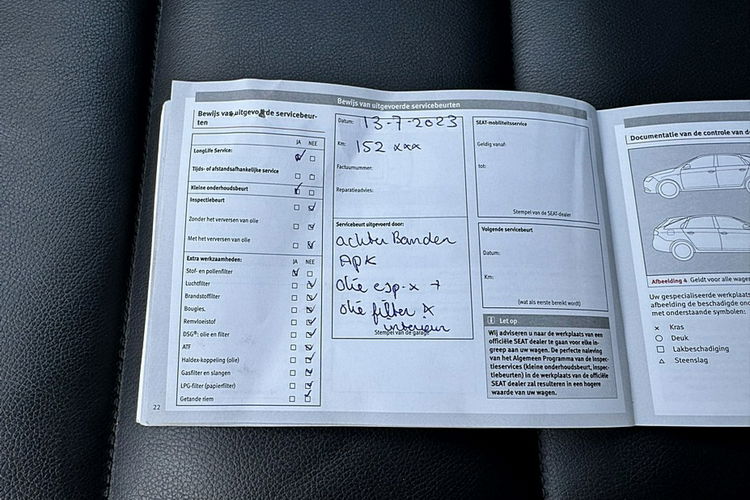 Bewijs van uitgevoerde servicebeurten
Bewijs van uitgevoerde servicebeur-
ten
JA NEE
LongLife Service:
Tijds- of afstandsafhankelijke service
Kleine onderhoudsbeurt
Inspectiebeurt
Zonder het verversen van olie
Met het verversen van olie
Extra werkzaamheden: JA NEE
Stof- en pollenfilter
Luchtfilter
Brandstoffilter
Bougies.
Remvloeistof
DSG®: olie en filter
ATF
Haldex-koppeling (olie)
Gasfilter en slangen
LPG-filter (papierfilter)
Getande riem
22
Datum: 13-7-2023
Km: 152 xxx
Factuurnummer:
Reparatieadvies:
Servicebeurt uitgevoerd door:
achter Banden
APK
olie
olie filter
interieur
Stempel van de garage
SEAT-mobiliteitsservice
Geldig vanaf:
tot:
Stempel van de SEAT-dealer
Volgende servicebeurt
Datum:
Km:
(wat als eerste bereikt wordt)
i Let op
Wij adviseren u naar de werkplaats van een
officiële SEAT dealer te gaan voor elke in-
greep aan uw wagen. De perfecte naleving
van het Algemeen Programma van de Inspec-
tieservices (kleine onderhoudsbeurt, inspec-
tiebeurten) in de werkplaats van de officiële
SEAT dealer zal resulteren in een hogere
waarde van uw wagen.
Documentatie van de controle van d
Afbeelding 4 Geldt voor alle wage
Uw gespecialiseerde werkplaats
afbeelding de beschadigde ond
met onderstaande symbolen:
× Kras
○ Deuk
□ Lakbeschadiging
△ Steenslag